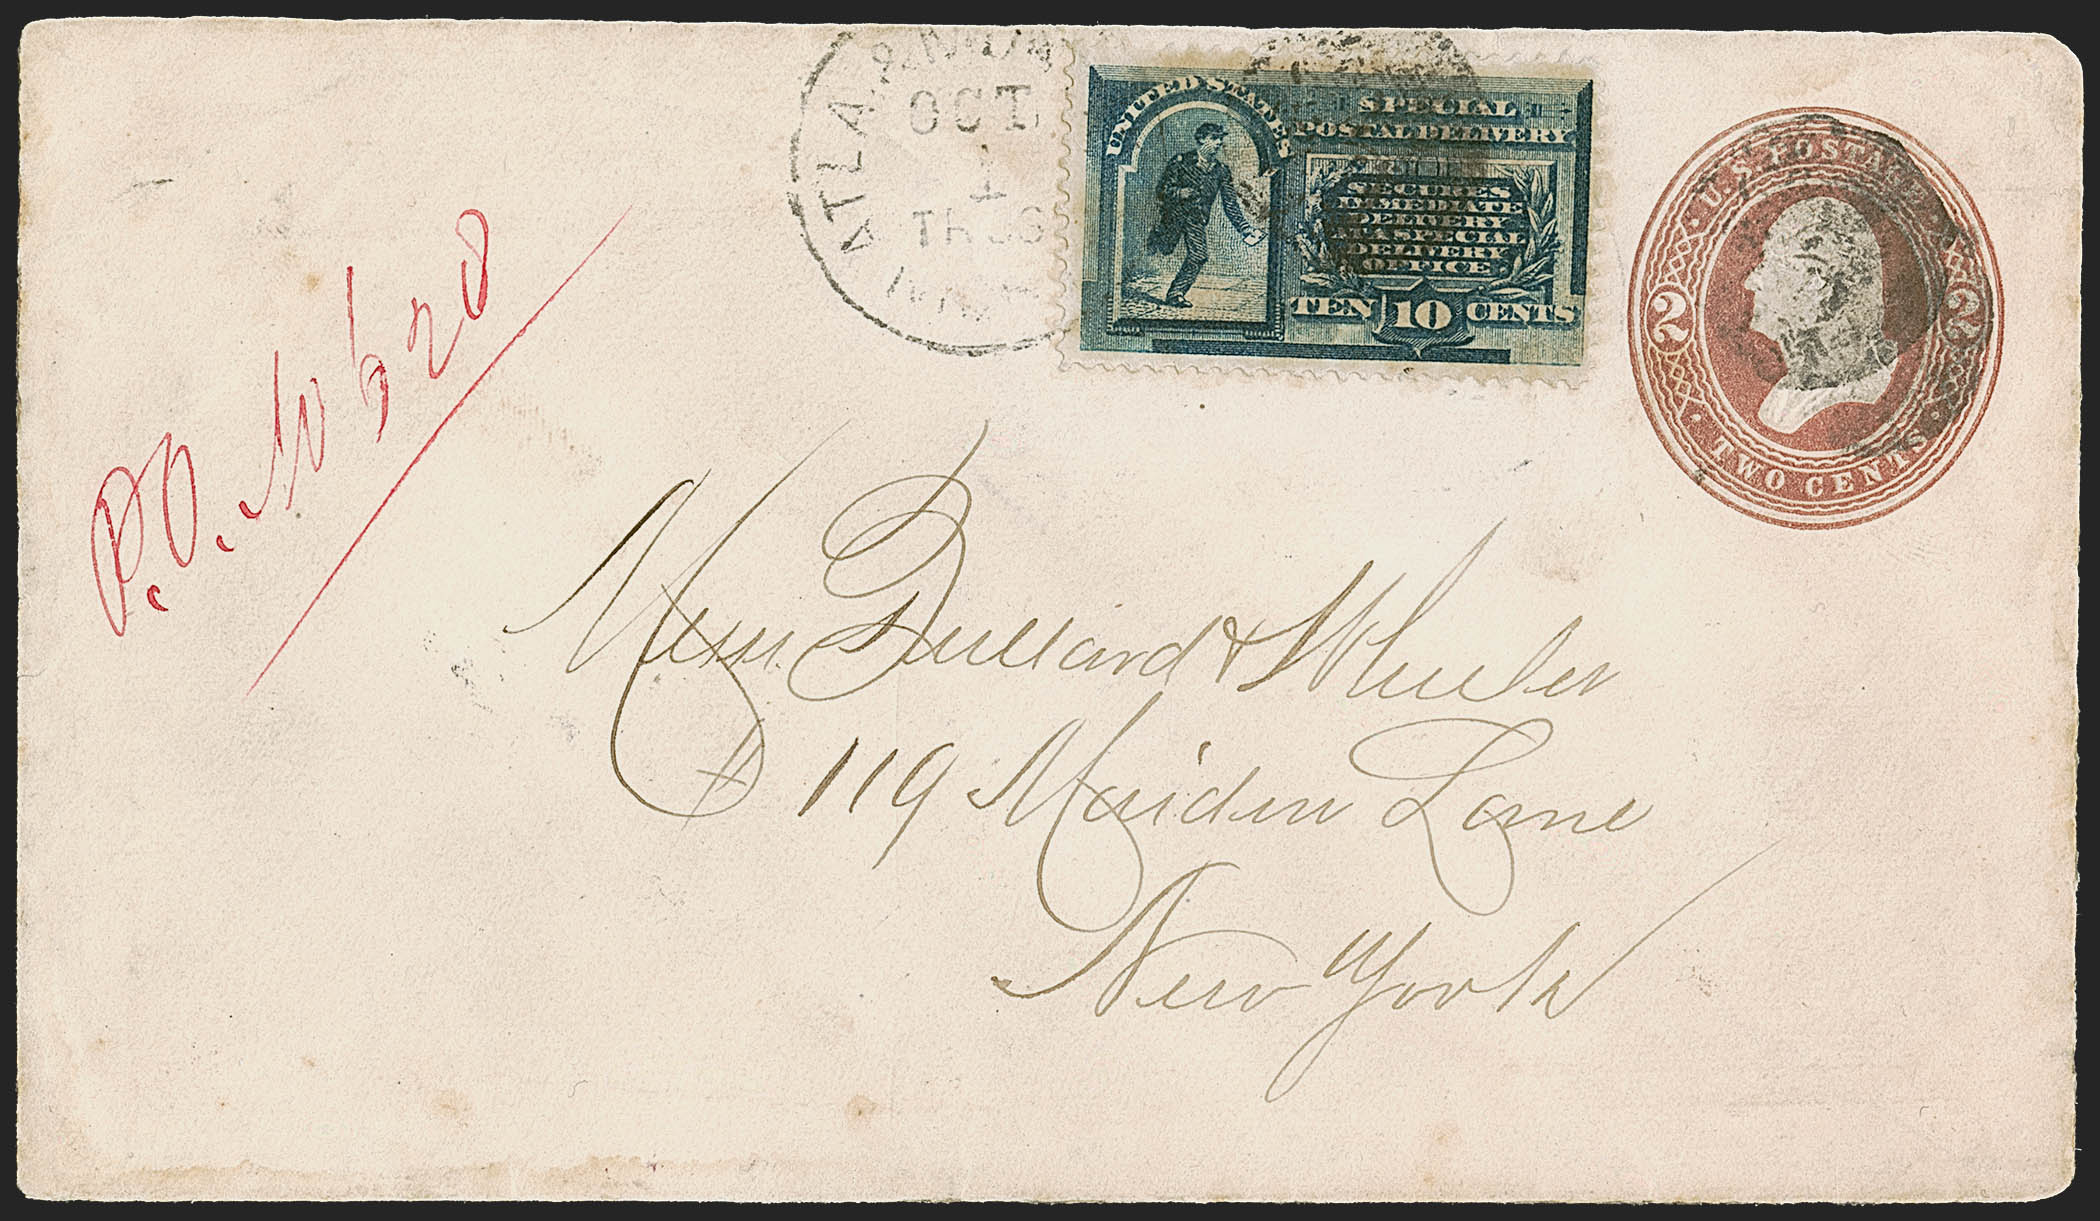 ATLA
OCT
1
UNITED STATES
SPECIAL
POSTAL DELIVERY
SECURES
IMMEDIATE
DELIVERY
AT A SPECIAL
DELIVERY
OFFICE.
TEN 10 CENTS
U.S. POSTAGE
2 2
TWO CENTS
P.O. No 620
Messrs Bullard & Wheeler
119 Maiden Lane
New York